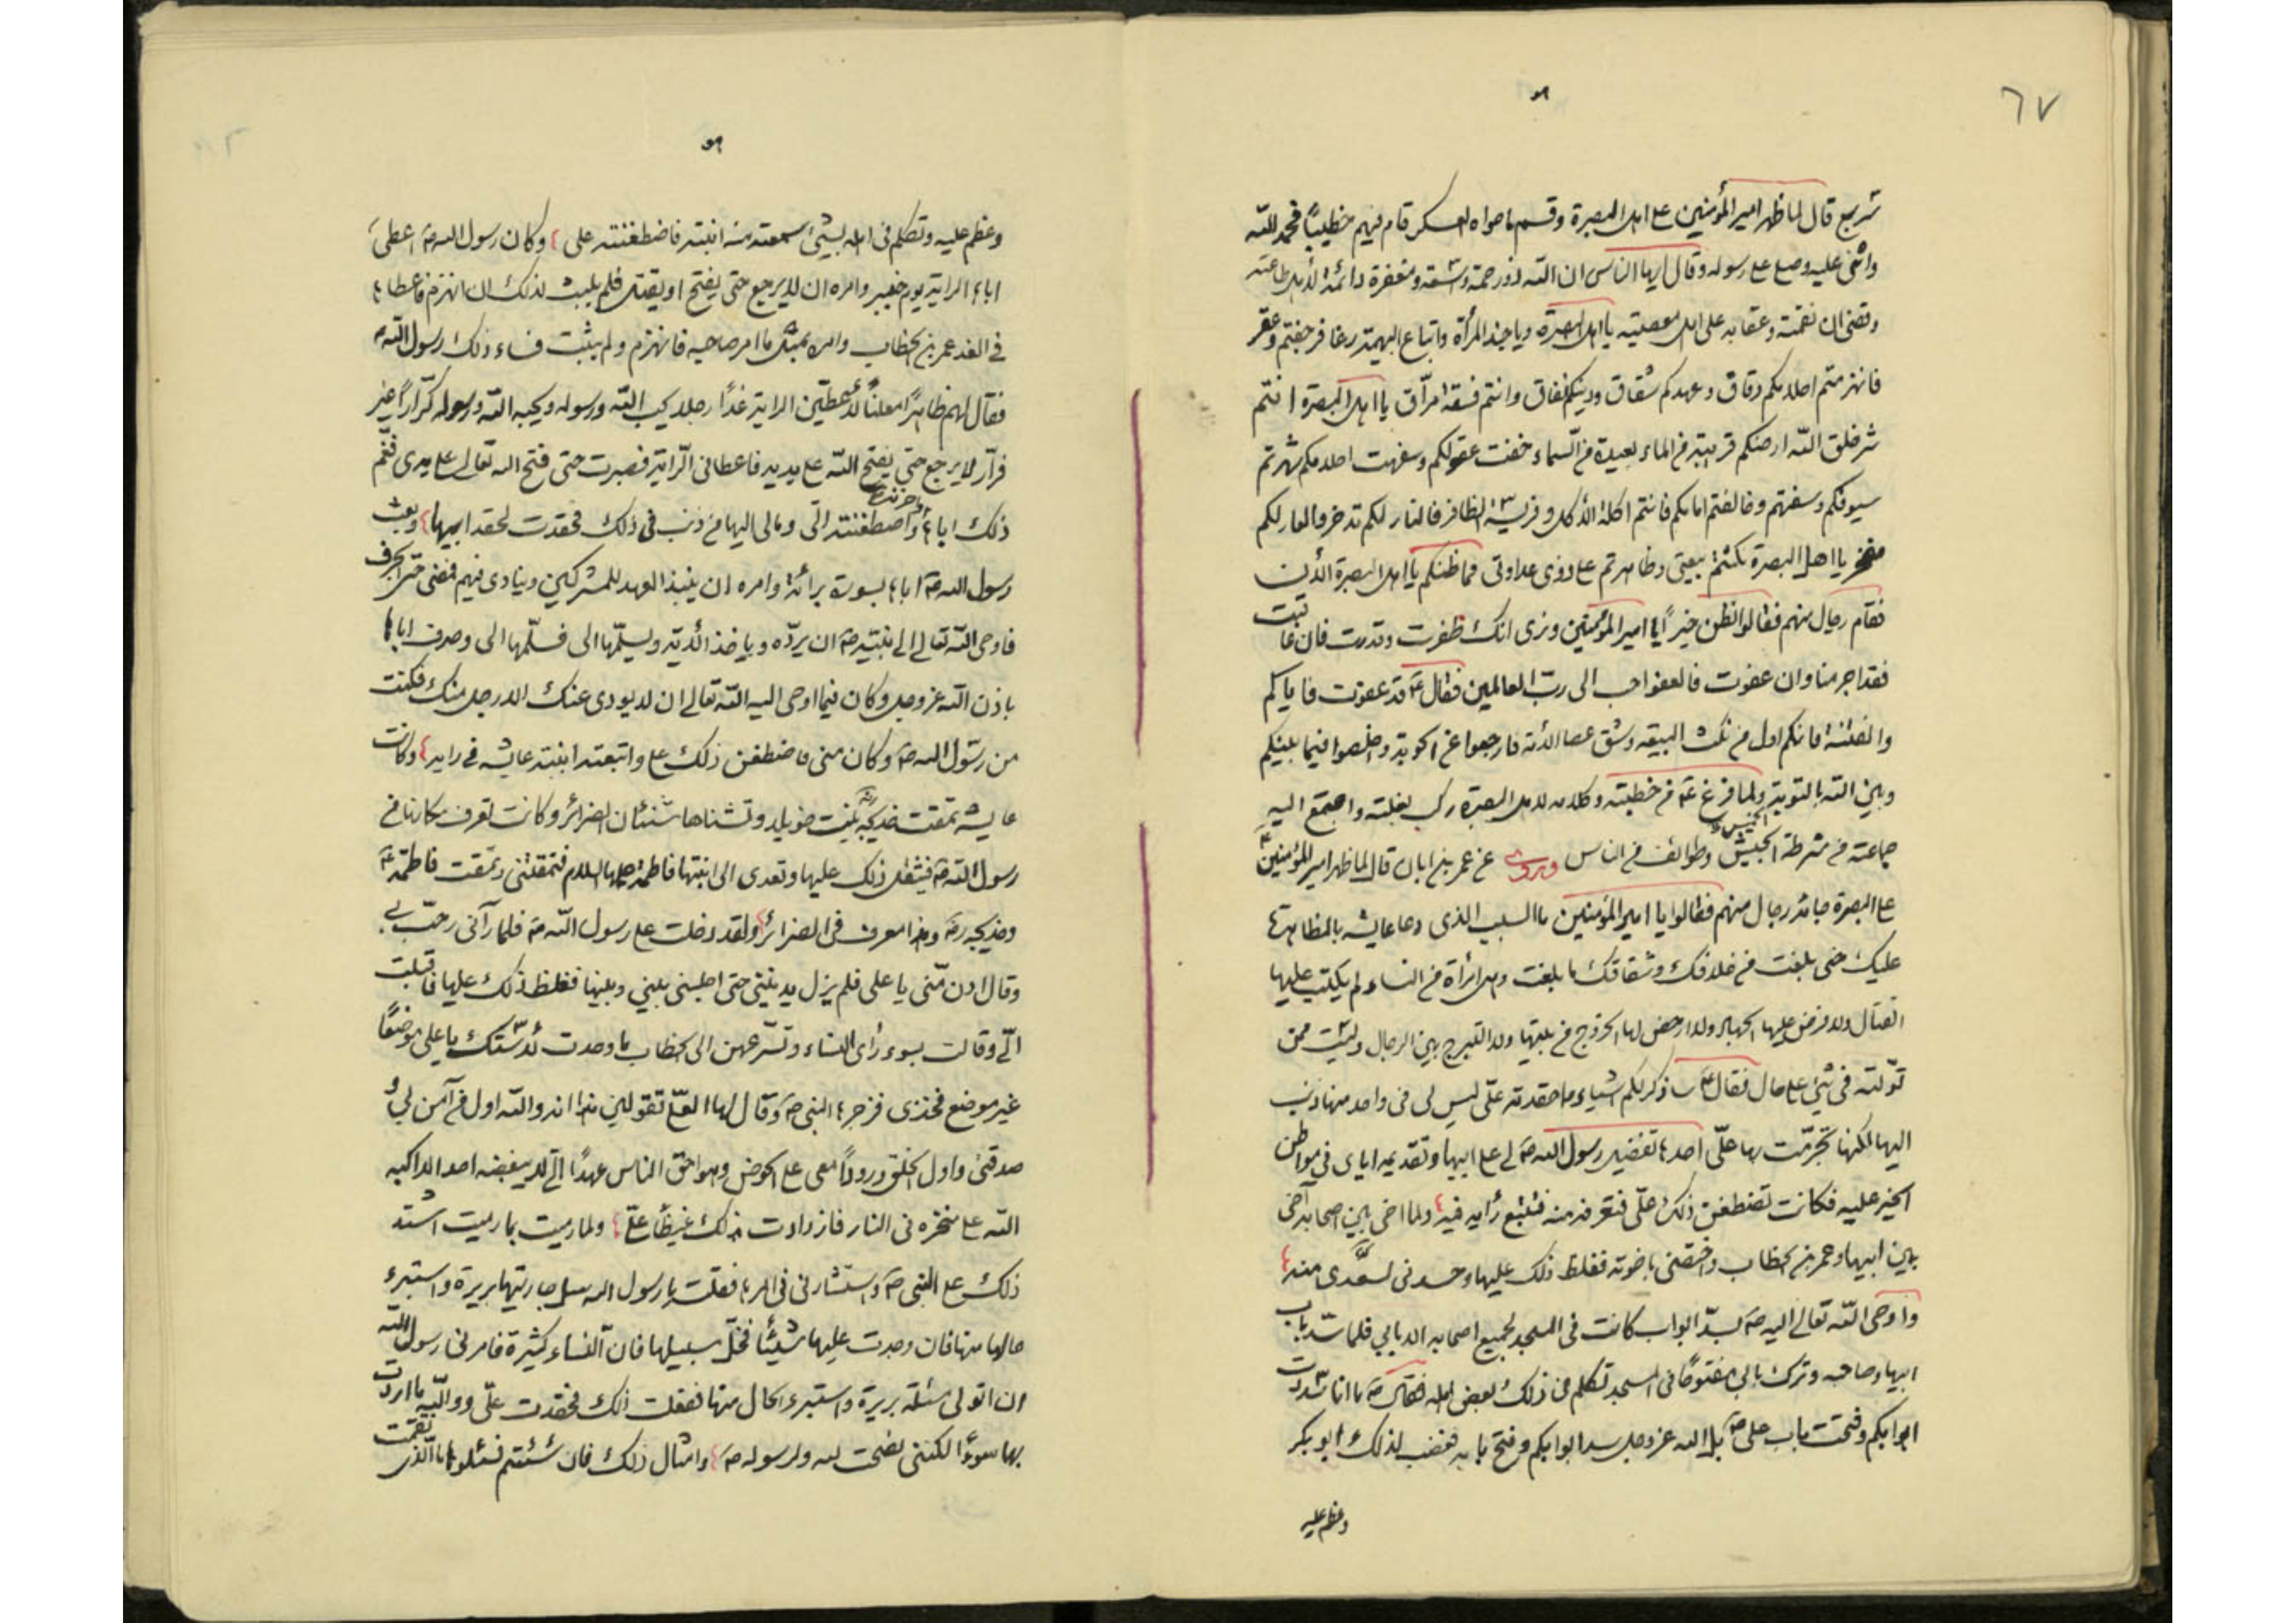 ٦٧
شريح قال لما ظهر امير المؤمنين ع اهل البصرة وقسم ما حواه العسكر قام فيهم خطيبًا فحمد الله
واثنى عليه وصلى على رسوله وقال ايها الناس ان الله ذو رحمة واسعة ومغفرة دائمة لاهل طاعته
وقضى ان نقمته وعقابه على اهل معصيته يا اهل البصرة ويا جند المرأة واتباع البهيمة رغا فرجفتم وعقر
فانهزمتم احلامكم دقاق وعهدكم شقاق ودينكم نفاق وانتم فسقة مراق يا اهل البصرة انتم
شر خلق الله ارضكم قريبة من الماء بعيدة من السماء خفت عقولكم وسفهت احلامكم شهرتم
سيوفكم وسفهتم وخالفتم امامكم فانتم اكلة الآكل وفريسة الظافر فالنار لكم مدخر والعار لكم
مفخر يا اهل البصرة نكثتم بيعتي وظاهرتم على ذوى عداوتى فما ظنكم يا اهل البصرة الآن
فقام رجال منهم فقالوا نظن خيرًا يا امير المؤمنين ونرى انك ظفرت وقدرت فان عاقبت
فقد اجرمنا وان عفوت فالعفو احب الى رب العالمين فقال ع قد عفوت فاياكم
والفتنة فانكم اول من نكث البيعة وشق عصا الامة فارجعوا عن الحوبة واخلصوا فيما بينكم
وبين الله بالتوبة ولما فرغ ع من خطبته وكلامه لاهل البصرة ركب بغلته واجتمع اليه
جماعة من شرطة الجيش الخميس وطوائف من الناس وروى عن عمر بن ابان قال لما ظهر امير المؤمنين ع
ع البصرة جائه رجال منهم فقالوا يا امير المؤمنين ما السبب الذى دعا عايشه بالمظاهرة
عليك حتى بلغت من خلافك وشقاقك ما بلغت وهى امرأة من النساء لم يكتب عليها
القتال ولا فرض عليها الجهاد ولا ارخص لها الخروج من بيتها ولا التبرج بين الرجال وليست ممن
تولته فى شئ على حال فقال ع ساذكر لكم اشياء مما حقدته علىّ ليس لى فى واحد منها ذنب
اليها لكنها تجرمت بها علىّ احدها تفضيل رسول الله ص لى على ابيها وتقديمه اياى فى مواطن
الخير عليه فكانت تضطغن ذلك علىّ فتعرفه منه فتتبع رأيه فيه ولما اخى بين اصحابه آخى
بين ابيها وعمر بن الخطاب واختصنى باخوته فغلظ ذلك عليها وحسدنى لسعدى منه
واوحى الله تعالى اليه ص بسد ابواب كانت فى المسجد لجميع اصحابه الا بابى فلما سد باب
ابيها وصاحبه وترك بابى مفتوحًا فى المسجد تكلم فى ذلك بعض اهله فقال ص ما انا سددت
ابوابكم وفتحت باب على ص بل الله عز وجل سد ابوابكم وفتح بابه فغضب لذلك ابو بكر
وعظم عليه
وعظم عليه وتكلم فى اهله بشئ سمعته منه ابنته فاضطغنته على وكان رسول الله ص اعطى
اباها الراية يوم خيبر وامره ان لا يرجع حتى يفتح او يقتل فلم يلبث لذلك ان انهزم فاعطاها
فى الغد عمر بن الخطاب وامره بمثل ما امر صاحبه فانهزم ولم يثبت فساء ذلك رسول الله ص
فقال لهم ظاهرًا معلنًا لأعطين الراية غدًا رجلا يحب الله ورسوله ويحبه الله ورسوله كرّارًا غير
فرّار لا يرجع حتى يفتح الله على يديه فاعطانى الراية فصبرت حتى فتح الله تعالى على يدى فغم
ذلك اباها واحزنه واضطغنته الىّ ومالى اليها من ذنب فى ذلك فحقدت لحقد ابيها وبعث
رسول الله ص اباها بسورة برائة وامره ان ينبذ العهد للمشركين وينادى فيهم فمضى حتى الجرف
فاوحى الله تعالى الى نبيه ص ان يرده وياخذ الآية ويسلمها الى فسلمها الى وصرف اباها
باذن الله عز وجل وكان فيما اوحى اليه الله تعالى ان لا يودى عنك الا رجل منك فكنت
من رسول الله ص وكان منى فاضطغن ذلك على واتبعته ابنته عايشه فى رايه وكانت
عايشه تمقت خديجة بنت خويلد وتشناها شنئان الضرائر وكانت تعرف مكانها من
رسول الله ص فيثقل ذلك عليها وتعدى الى ابنتها فاطمة عليها السلام فتمقتنى وتمقت فاطمة ع
وخديجه رض وهذا معروف فى الضرائر ولقد دخلت على رسول الله ص فلما رآنى رحب بى
وقال ادن منّى يا على فلم يزل يدنينى حتى اجلسنى بينى وبينها فغلظ ذلك عليها فاقبلت
الىّ وقالت بسوء رأى النساء وتسرعهن الى الخطاب ما وجدت لأستك يا على موضعًا
غير موضع فخذى فزجرها النبى ص وقال لها العلىّ تقولين هذا انه والله اول من آمن بى و
صدقنى واول الخلق ورودًا معى على الحوض وهو احق الناس عهدًا الىّ لا يبغضه احد الا اكبه
الله على منخره فى النار فازدادت بذلك غيظًا علىّ ولما رميت بما رميت اشتد
ذلك على النبى ص واستشارنى فى امرها فقلت يا رسول الله سل جاريتها بريرة واستبرء
حالها منها فان وجدت عليها شيئًا فخلّ سبيلها فان النساء كثيرة فامرنى رسول الله
ان اتولى مسئلة بريرة واستبرء الحال منها ففعلت ذلك فحقدت علىّ ووالله ما اردت
بها سوءًا لكننى نصحت لله ولرسوله ص وامثال ذلك فان شئتم فسئلوها ما الذى نقمت